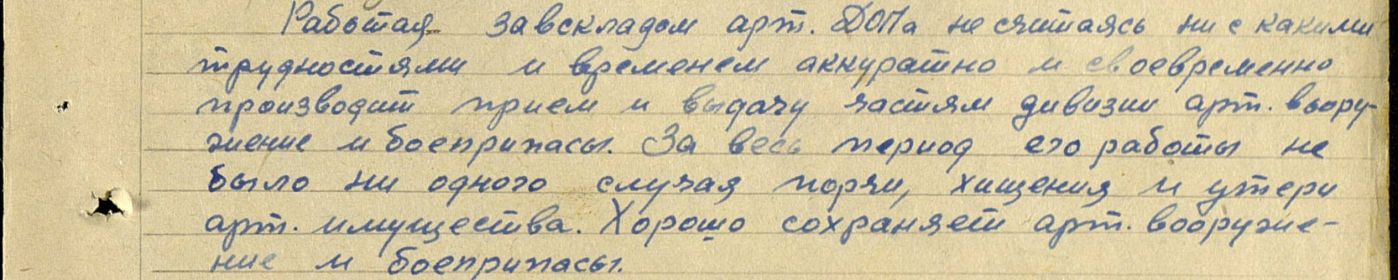 Работая завскладом арт. ДОПа не считаясь ни с какими
трудностями и временем аккуратно и своевременно
производит прием и выдачу частям дивизии арт. воору-
жение и боеприпасы. За весь период его работы не
было ни одного случая порчи, хищения и утери
арт. имущества. Хорошо сохраняет арт. вооруже-
ние и боеприпасы.